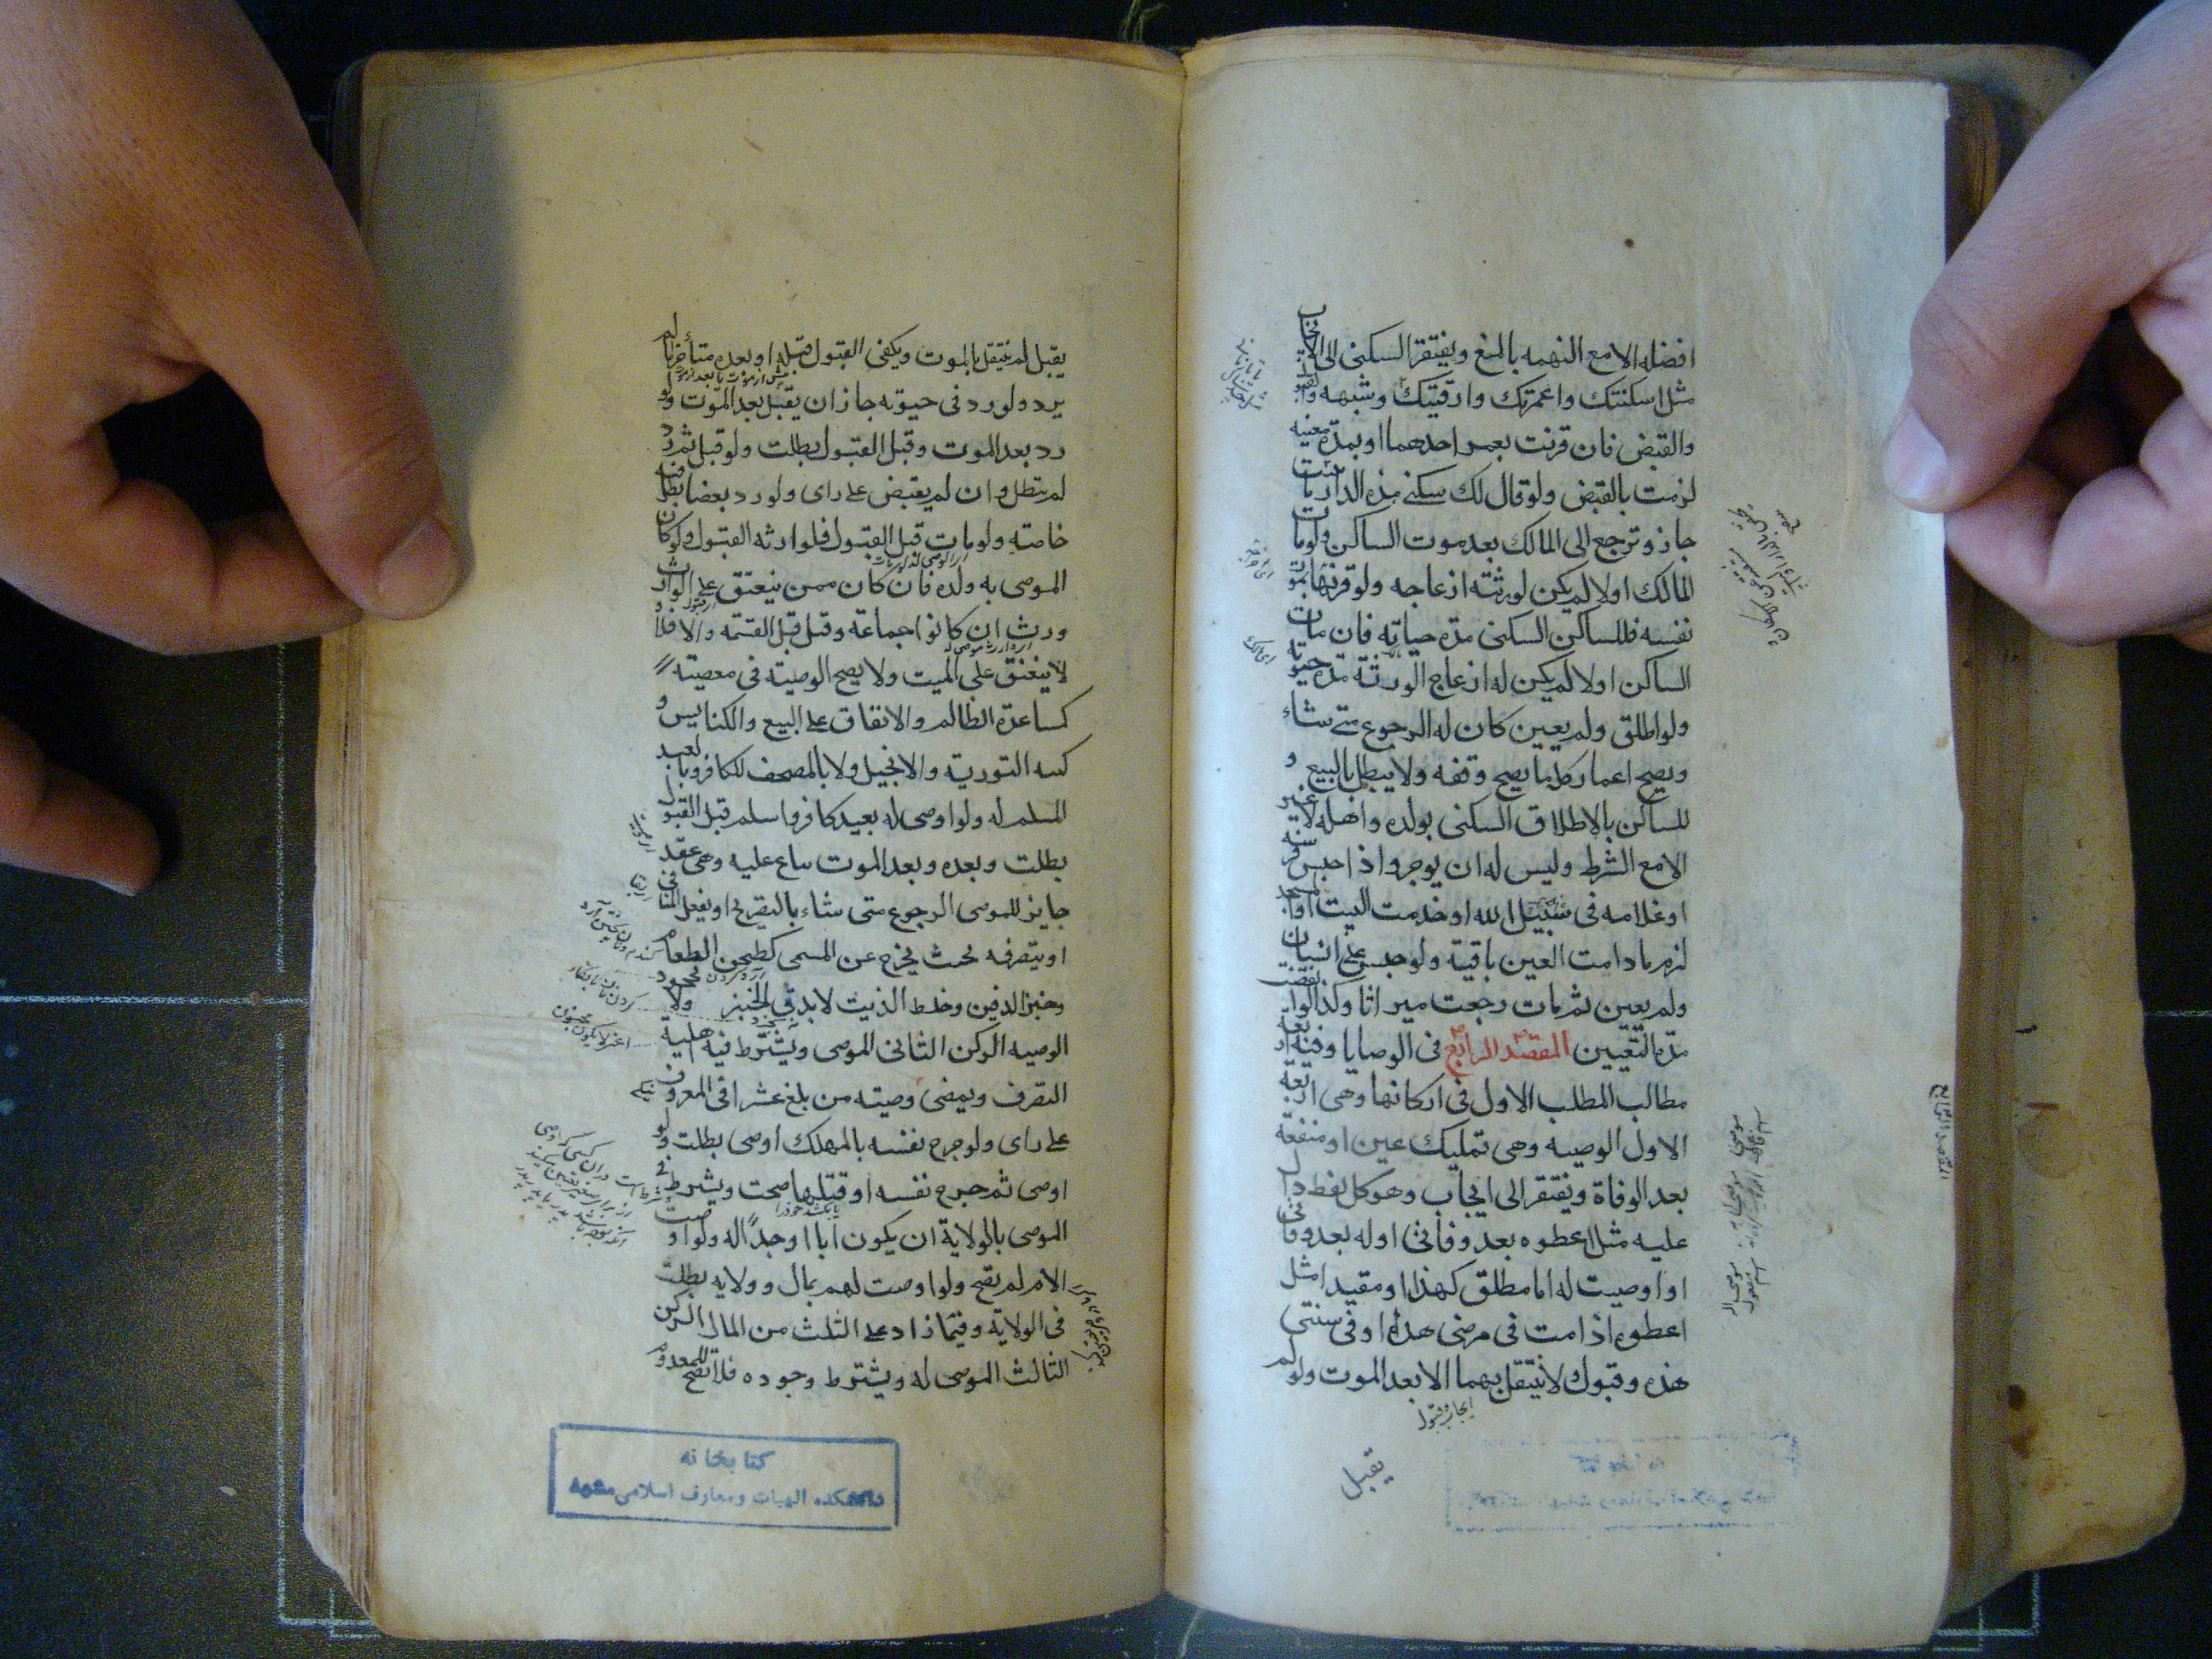 افضله الا مع التهمه بالمنع ويفتقر السكنى الى الايجاب
مثل اسكنتك واعمرتك وارقبتك وشبهه والقبول
والقبض فان قرنت بعمر احدهما او بمدة معينه
لزمت بالقبض ولو قال لك سكنى هذه الدار ما بقيت
جاز وترجع الى المالك بعد موت الساكن ولو مات
المالك اولا لم يكن لورثته ازعاجه ولو قرنها بموت
نفسه فللساكن السكنى مدة حياته فان مات
الساكن اولا لم يكن له ازعاج الورثة مدة حيوته
ولو اطلق ولم يعين كان له الرجوع متى شاء
ويصح اعمار كل ما يصح وقفه ولا يبطل بالبيع و
للساكن بالاطلاق السكنى بولده واهله لا غير
الا مع الشرط وليس له ان يوجر واذا حبس فرسه
او غلامه فى سبيل الله او خدمت البيت او المسجد
لزم ما دامت العين باقية ولو حبس على انسان
ولم يعين ثم مات رجعت ميراثا وكذا لو انقضت
مدة التعيين المقصد الرابع فى الوصايا وفيه اربعة
مطالب المطلب الاول فى اركانها وهى اربعة
الاول الوصيه وهى تمليك عين او منفعة
بعد الوفاة ويفتقر الى ايجاب وهو كل لفظ دال
عليه مثل اعطوه بعد وفاتى او له بعد وفاتى
او اوصيت له اما مطلق كهذا او مقيد مثل
اعطوه اذا مت فى مرضى هذا او فى سنتى
هذه وقبول لا ينتقل بهما الا بعد الموت ولو لم
ايجاب وقبول
يقبل
المقصد الرابع
يقبل لم ينتقل بالموت ويكفى القبول قبله او بعده متأخرا ما لم
پيش از موت يا بعد از موت
يرد ولو رد فى حيوته جاز ان يقبل بعد الموت ولو
رد بعد الموت وقبل القبول بطلت ولو قبل ثم رد
لم يبطل وان لم يقبض على راى ولو رد بعضا بطل فيه
خاصته ولو مات قبل القبول فلوارثه القبول ولو كان
الموصى به ولده فان كان ممن ينعتق على الوارث
ورث ان كانوا جماعة وقبل قبل القسمه والا فلا
لا ينعتق على الميت ولا يصح الوصية فى معصية
كمساعدة الظالم والانفاق على البيع والكنايس و
كتبه التورية والانجيل ولا بالمصحف للكافر وبالعبد
المسلم له ولو اوصى له بعبد كافر فاسلم قبل القبول
بطلت وبعده وبعد الموت يباع عليه وهى عقد
جايز للموصى الرجوع متى شاء بالتصريح او بفعل المنافى
او بتصرفه بحيث يخرج عن المسمى كطحن الطعام
وخبز الدقيق وخلط الزيت لا بدق الخبز ولا بجحود
الوصيه الركن الثانى الموصى ويشترط فيه اهلية
التصرف ويمضى وصيته من بلغ عشرا فى المعروف
على راى ولو جرح نفسه بالمهلك اوصى بطلت ولو
اوصى ثم جرح نفسه او قتلها صحت ويشرط فى
الموصى بالولاية ان يكون ابا او جدا له ولو اوصت
الام لم يصح ولو اوصت لهم بمال وولايه بطلت
فى الولاية وفيما زاد على الثلث من المال الركن
الثالث الموصى له ويشترط وجوده فلا تصح للمعدوم
كتابخانه
دانشكده الهيات ومعارف اسلامى مشهد